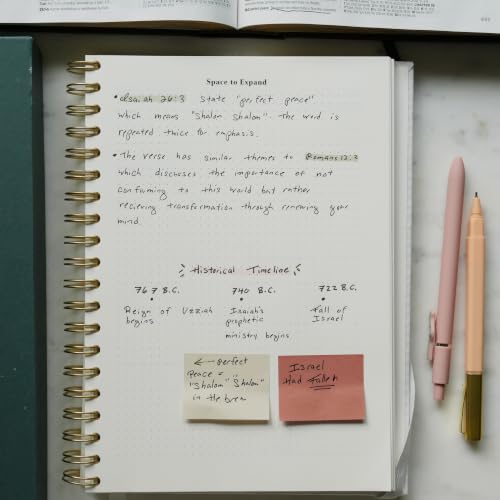 Space to Expand
• Isaiah 26:3 State "perfect peace"
which means "Shalom Shalom" The word is
repeated twice for emphasis.
• The verse has similar themes to Romans 12:3
which discusses the importance of not
confuming to this world but rather
recieving transformation through renewing your
mind.
Historical Timeline
767 B.C. 740 B.C. 722 B.C.
Reign of Uzziah Isaiah's Fall of
begins prophetic Israel
ministry begins
← perfect
Peace =
"Shalom" "Shalom"
in Hebrew
Israel
Had Fallen